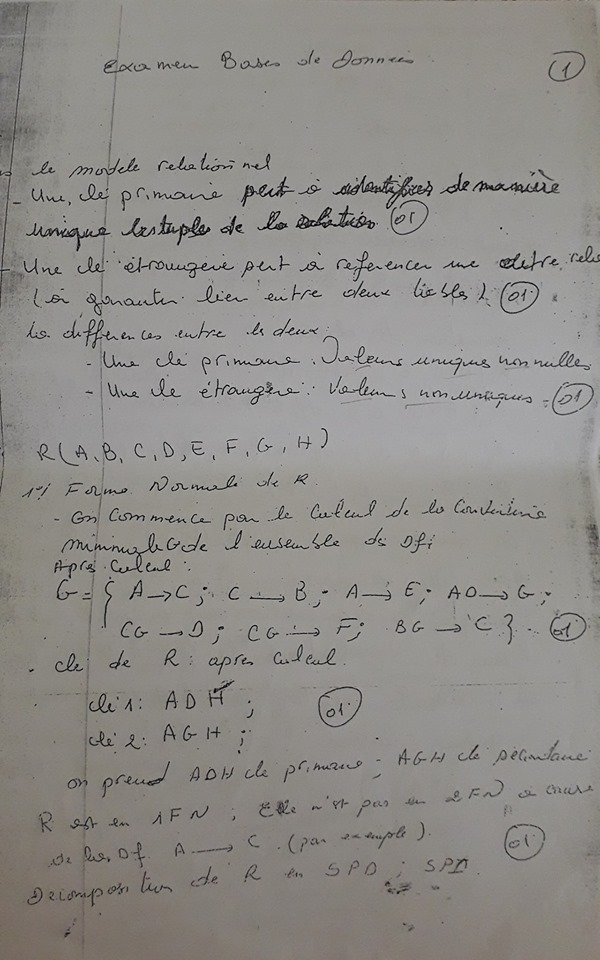 Examen Bases de Données
1
le modèle relationnel
- Une clé primaire pert à identifier de manière
unique les tuple de la relation 01
- Une clé étrangère pert à referencer une autre rela
(à garantir lien entre deux tables). 01
la differences entre les deux:
- Une clé primaire: Valeurs uniques non nulles
- Une clé étrangère: Valeurs non uniques - 01
R(A, B, C, D, E, F, G, H)
1°/ Forme Normale de R.
- On commence par le Calcul de la Couverture
minimale G de l'ensemble de Dfs
Après Calcul:
G = { A → C; C → B; A → E; AD → G;
CG → D; CG → F; BG → C }. 01
- clé de R: après calcul.
clé 1: ADH;
clé 2: AGH; 01
on prend ADH clé primaire; AGH clé secondaire
R est en 1FN; Elle n'est pas en 2FN à cause
de la Df A → C. (par exemple). 01
Decomposition de R en SPD; SPI